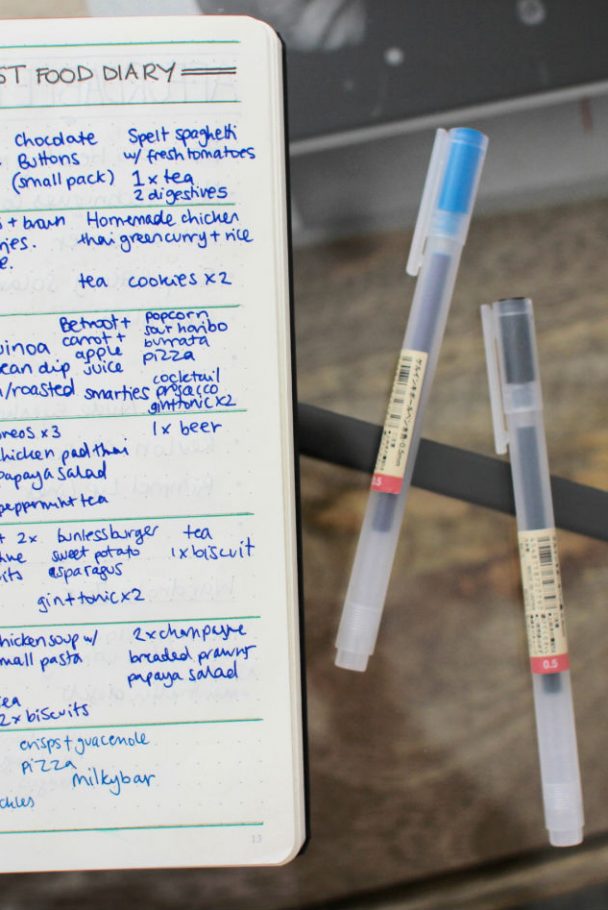 ST FOOD DIARY
Chocolate
Buttons
(small pack)
Spelt spaghetti
w/ fresh tomatoes
1 x tea
2 digestives
s + brown
ries.
e.
Homemade chicken
thai green curry + rice
tea cookies x2
uinoa
ean dip
n/roasted
Betroot +
carrot +
apple
juice
smarties
popcorn
sour haribo
burrata
pizza
cocktail
prosecco
gin+tonic x2
1 x beer
oreos x3
chicken pad thai
papaya salad
peppermint tea
+ 2x
its
bunless burger
sweet potato
asparagus
gin+tonic x2
tea
1 x biscuit
chicken soup w/
small pasta
2 x champagne
breaded prawns
papaya salad
tea
2 x biscuits
crisps + guacemole
pizza
milkybar
ckles
13
0.5mm
0.5
0.5